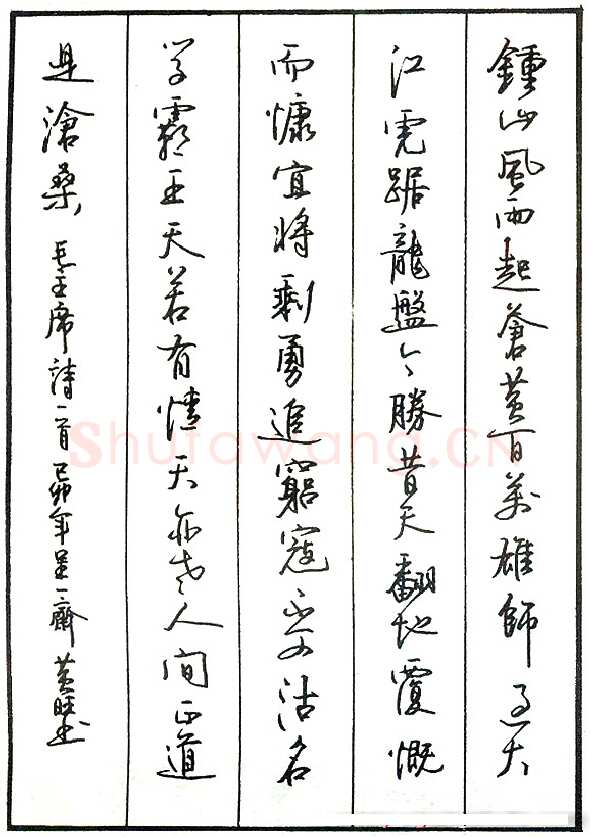 鍾山風雨起蒼黃百萬雄師過大
江虎踞龍盤今勝昔天翻地覆慨
而慷宜將剩勇追窮寇不可沽名
学霸王天若有情天亦老人間正道
是滄桑 毛主席詩一首 己卯年呈一齋 黃旺书
Shufawang.CN